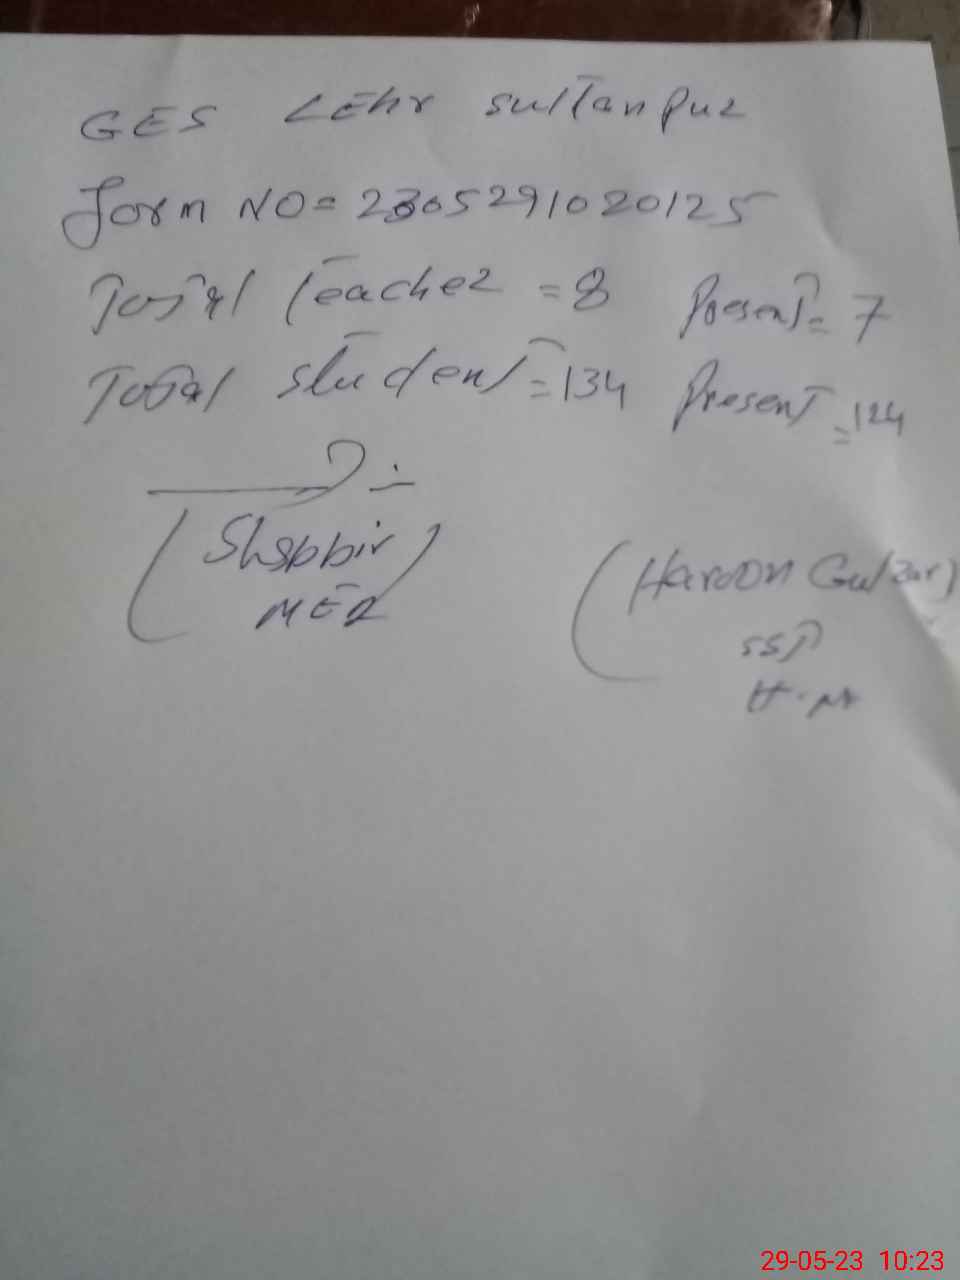 GES LEhr Sultanpur
Form NO = 2305291020125
Total Teacher = 8 Present = 7
Total student = 134 Present = 124
(Shabbir)
MER
(Haroon Gulzar)
SSP
H.M
29-05-23 10:23